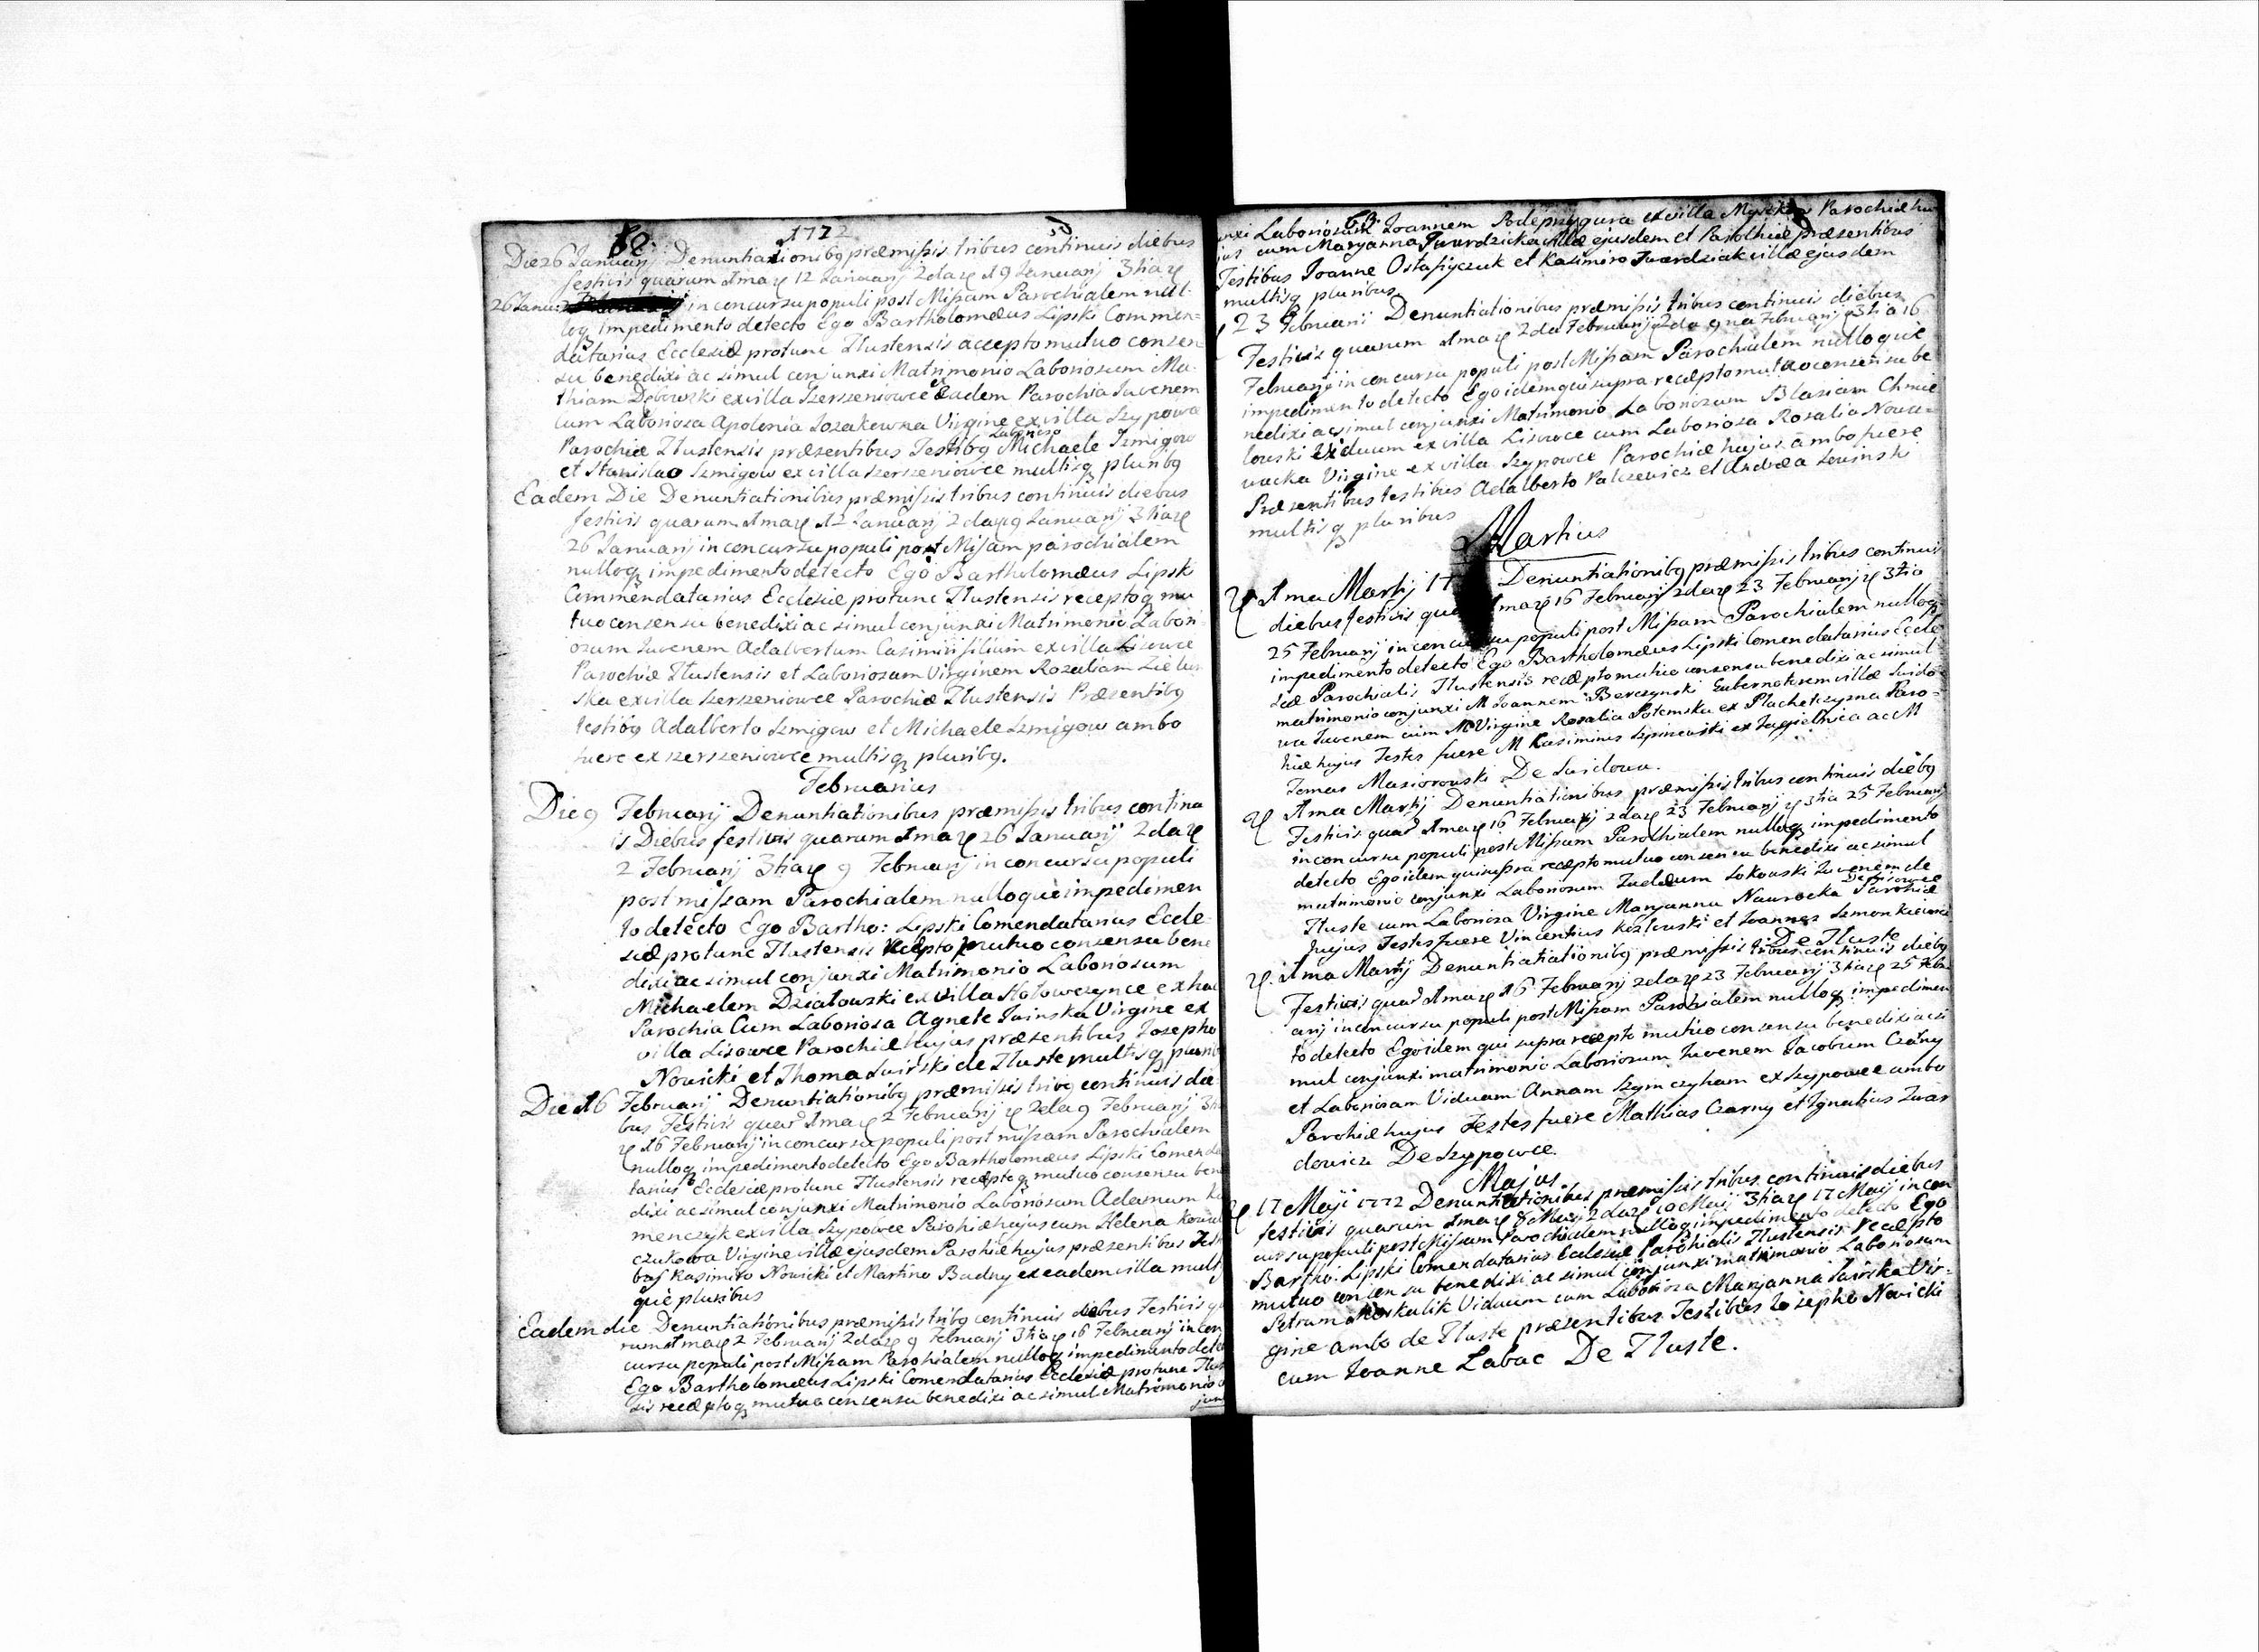 1772
Die 26 Januarij Denuntiationibq præmissis tribus continuis diebus
festivis quarum 1ma 12 Januarij 2da 19 Januarij 3tia
26 Januarij in concursu populi post Missam Parochialem nul-
loq impedimento detecto Ego Bartholomæus Lipski Commen-
datarius Ecclesiæ protunc Tlustensis accepto mutuo consen
su benedixi ac simul conjunxi Matrimonio Laboriosum Ma-
thiam Dębowski ex villa Szerszeniowce ex eadem Parochia Juvenem
cum Laboriosa Apolonia Virgine ex villa Szypowce
Laborioso
Parochiæ Tlustensis præsentibus Testibq Michaele Szmigow
et Stanislao Szmigow ex villa Szerszeniowce multisq pluribq
Eadem Die Denuntiationibus præmissis tribus continuis diebus
festivis quarum 1ma 12 Januarij 2da 19 Januarij 3tia
26 Januarij in concursu populi post Missam parochialem
nulloq impedimento detecto Ego Bartholomæus Lipski
Commendatarius Ecclesiæ protunc Tlustensis receptoq mu
tuo consensu benedixi ac simul conjunxi Matrimonio Labori
osum Juvenem Adalbertum Casimiri filium ex villa Lisowce
Parochiæ Tlustensis et Laboriosam Virginem Rozaliam Zielin
ska ex villa Szerszeniowce Parochiæ Tlustensis Præsentibq
testibq Adalberto Szmigow et Michaele Szmigow ambo
fuere ex Szerszeniowce multisq pluribq.
Februarius
Die 9 Februarij Denuntiationibus præmissis tribus continu
is Diebus festivis quarum 1ma 26 Januarij 2da
2 Februarij 3tia 9 Februarij in concursu populi
post missam Parochialem nulloque impedimen
to detecto Ego Bartho: Lipski Comendatarius Eccle-
siæ protunc Tlustensis recepto mutuo consensu bene
dixi ac simul conjunxi Matrimonio Laboriosum
Michaelem Działowski ex villa Hołowczynce ex hac
Parochia Cum Laboriosa Agnete Virgine ex
villa Lisowce Parochiæ hujus præsentibus Josepho
Nowicki et Thoma Swirski de Tluste multisq pluribq
Die 16 Februarij Denuntiationibq præmissis tribq continuis die
bus Festivis quar 1ma 2 Februarij 2da 9 Februarij 3tia
16 Februarij in concursu populi post missam Parochialem
nulloq impedimento detecto Ego Bartholomæus Lipski Comenda
tarius Ecclesiæ protunc Tlustensis receptoq mutuo consensu bene
dixi ac simul conjunxi Matrimonio Laboriosum Adamum
menczyk ex villa Szypowce Parohiæ hujus cum Helena
czukowa Virgine villæ ejusdem Parohiæ hujus præsentibus Testi
bus Kasimiro Nowicki et Martino Budny ex eadem villa multis
que pluribus
Eadem die Denuntiationibus præmissis tribq continuis diebus Festivis qua
rum 1ma 2 Februarij 2da 9 Februarij 3tia 16 Februarij in con
cursu populi post Missam Parohialem nulloq impedimento detecto
Ego Bartholomæus Lipski Comendatarius Ecclesiæ protunc Tlusten
sis receptoq mutuo consensu benedixi ac simul Matrimonio con
junxi
63.
junxi Laboriosum Joannem Podeprzygura ex villa Parochiæ hu
jus cum Maryanna Twardzicka villæ ejusdem et Parochiæ præsentibus
Testibus Joanne Ostafiyczuk et Kasimiro Twardziak villæ ejusdem
multisq pluribus.
23 Februarij Denuntiationibus præmissis tribus continuis diebus
Festivis quarum 1ma 2da Februarij 2da 9na Februarij 3tia 16
Februarij in concursu populi post Missam Parochialem nulloque
impedimento detecto Ego idem qui supra recæpto mutuo consensu be
nedixi ac simul conjunxi Matrimonio Laboriosum Blasium Chmie
lowski Viduum ex villa Lisowce cum Laboriosa Rosalia Nowa-
wacka Virgine ex villa Szypowce Parochiæ hujus ambo fuere
Præsentibus testibus Adalberto Palczewicz et Andrea
multisq pluribus
Martius
1ma Martij 17 Denuntiationibq præmissis tribus continuis
diebus festivis qua 1ma 16 Februarij 2da 23 Februarij 3tia
25 Februarij in concursu populi post Missam Parochialem nulloq
impedimento detecto Ego Bartholomæus Lipski Comendatarius Eccle
siæ Parochialis Tlustensis recæpto mutuo consensu benedixi ac simul
matrimonio conjunxi M Joannem Berczynski Gubernatorem villæ Swido-
wa Juvenem cum M Virgine Rosalia Potemska ex Plachetczyzna Paro-
hiæ hujus Testes fuere M Kasimirus Szpinewski ex Jagielnica ac M
Tomas Masiorowski De Swidowa.
1ma Martij Denuntiationibus præmissis tribus continuis diebq
Festivis quar 1ma 16 Februarij 2da 23 Februarij 3tia 25 Februarij
in concursu populi post Missam Parochialem nulloq impedimento
detecto Ego idem qui supra recæpto mutuo consensu benedixi ac simul
matrimonio conjunxi Laboriosum Tadæum Sokowski Juvenem de
Tluste cum Laboriosa Virgine Maryanna Nawrocka Parohiæ
hujus Testes fuere Vincentius Kozlowski et Joannes Szmonkiewicz
De Tluste
1ma Martij Denuntiatiationibq præmissis tribus continuis diebq
Festivis quar 1ma 16 Februarij 2da 23 Februarij 3tia 25 Febru
arij in concursu populi post Missam Parohialem nulloq impedimen
to detecto Ego idem qui supra recæpto mutuo consensu benedixi ac si
mul conjunxi matrimonio Laboriosum Juvenem Jacobum Czarny
et Laboriosam Viduam Annam Szymczyham ex Szypowce ambo
Parohiæ hujus Testes fuere Mathias Czarny et Ignatius Zwar
dowicz De Szypowce.
Majus
17 Maji 1772 Denuntiationibus præmissis tribus continuis diebus
festivis quarum 1ma 8 Maij 2da 10 Maij 3tia 17 Maij in con
cursu populi post Missam Parochialem nulloq impedimento detecto Ego
Bartho: Lipski Comendatarius Ecclesiæ Parohialis Tlustensis recæpto
mutuo consensu benedixi ac simul conjunxi matrimonio Laboriosum
Petrum Viduum cum Laboriosa Maryanna Vir-
gine ambo de Tluste præsentibus Testibus Josepho Nowicki
cum Joanne Labac De Tluste.